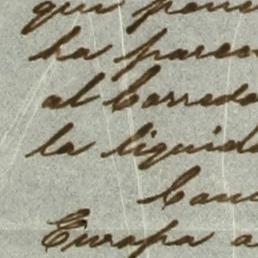 que pone
ha paren
al Corredo
la liquida
Can
Europa a